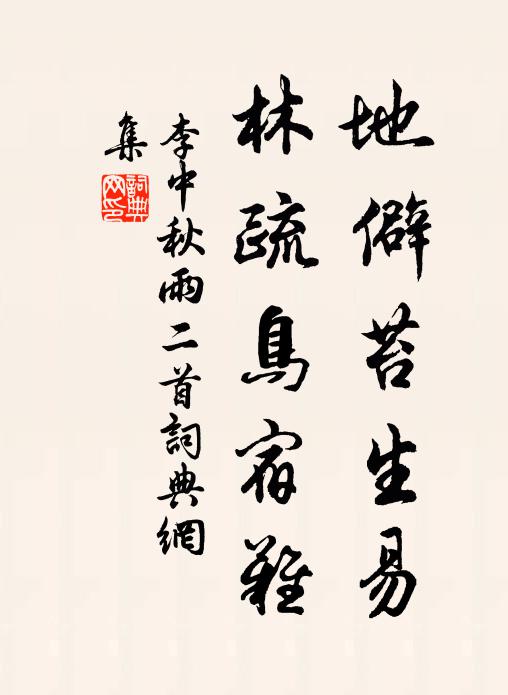 地僻苔生易
林疏鳥宿難
李中秋雨二首詞典網
集
詞典網印